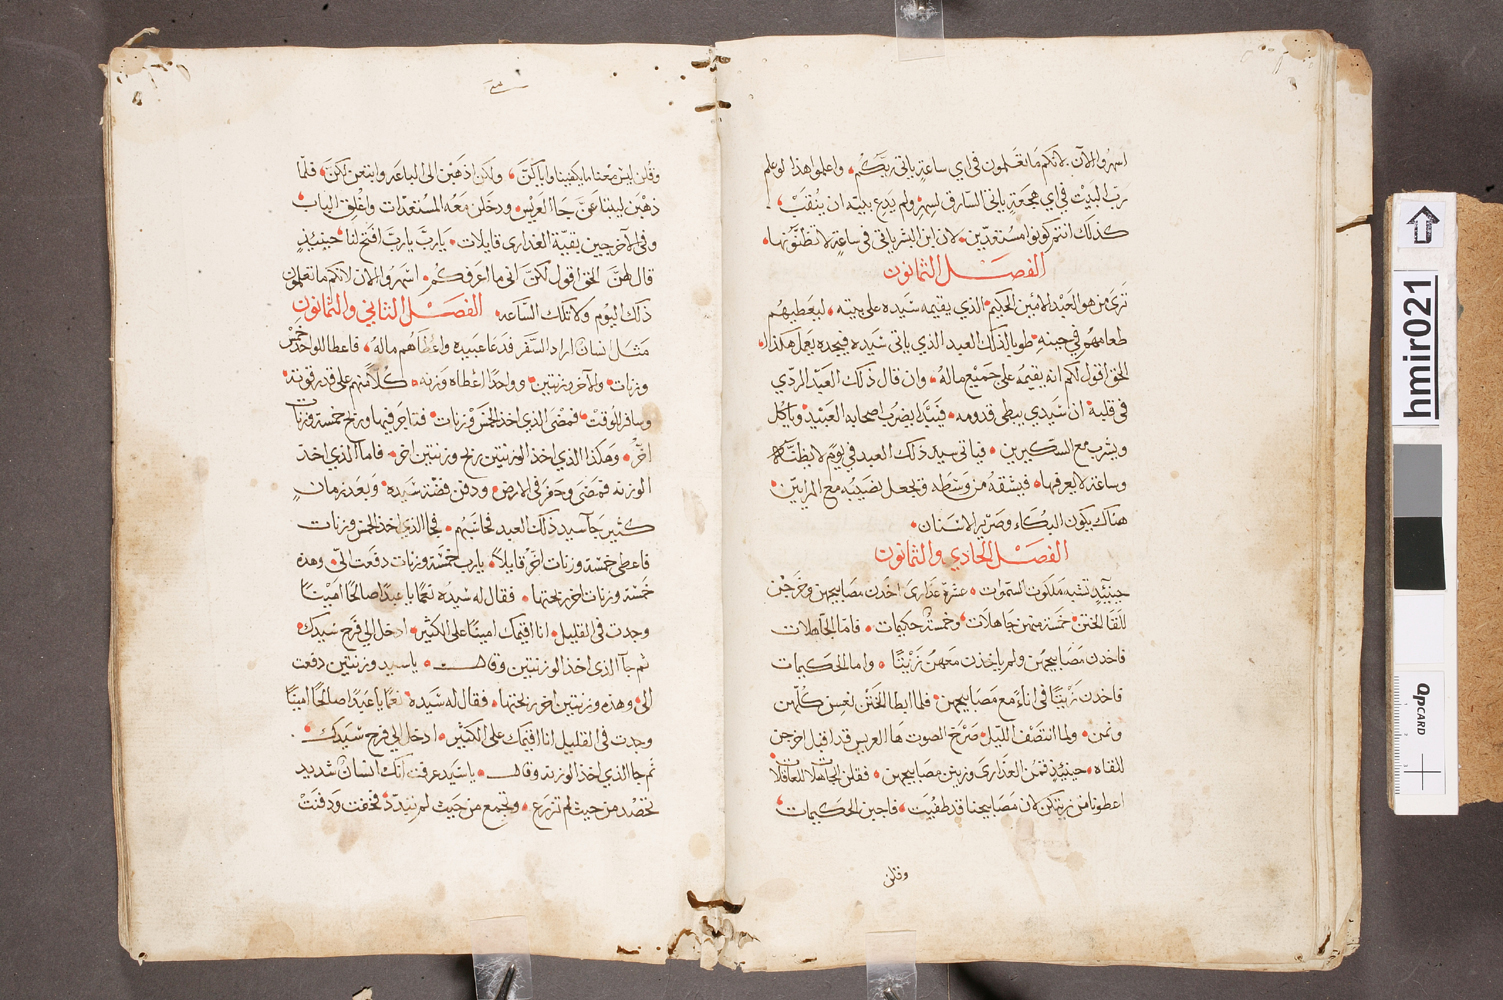 اسهروا الآن لانكم ما تعلمون في اي ساعةٍ ياتي ربّكم، واعلموا هذا لو علم
ربّ البيْت في اي هجعة ياتي السّارق لسهر ولم يدع بيته ان ينُقبْ.
كذلك انتم كونوا مستعدّين. لان ابن البشر ياتي في ساعةٍ لا تظنّونها.
الفصل الثمانون
تري من هو العبد الامين الحكيم الذي يقيمه سيّده علي بيته. ليعطيهم
طعامهم في حينهِ طوبا لذلك العبد الذي ياتي سيّده فيجده يعمل هكذا.
الحق اقول لكم انه يقيمهُ علي جميْع ماله. وان قال ذلك العبْد الردّي
في قلبهِ ان سيّدي يبطي قدومه. فيبْدا يضرب اصحابه العبيْد وياكل
ويشرب مع السكّيرين. فياتي سيد ذلك العبد في يومٍ لا يظنّه
وساعة لا يعرفها. فيشقهُ من وسَطه ويجعل نصَيبُه مع المرايّين.
هناك يكون البكاء وصَريْر الاسنان.
الفصل الحادي والثمانون
حينيذٍ تشبه مَلكوت السّموات. عشرة عذاري اخذن مصَابيحهن وخرجْن
للقا الختن. خمسة منهن جاهلاَت وخمسة حكيمات. فاما الجاهلات
فاخذن مصَابيحهن ولم ياخذن معَهنّ زَيْتًا. واما الحكيمات
فاخذن زَيْتًا في اناءٍ مع مصَابيحهن. فلما ابطا الختن نعسْن كلّهن
ونمن. ولما انتصَف الليْل صَرْخ الصوت ها العريس قد اقبل اخرجن
للقاه. حينيذٍ قمن العذاري وزينّ مصَابيحهن. فقلن الجاهلات للعاقلات
اعطونا من زيتكن لان مصَابيحنا قد طفيَت. فاجبن الحكيمات
وقلن
وقلن ليس معْنا ما يكفينا واياكنّ. ولكن اذهبْن الي الباعة وابتعن لكنّ. فلمّا
ذهبْن ليبتاعنَ جا العريْس. ودخلن معَه المستعدّات واغلق الباب
وفي الاخر جين بقيّة العذاري قايلات. ياربّ ياربّ افتح لنا حينيذٍ
قال لهنّ الحق اقول لكنّ اني ما اعرفكم. اسهروا الان لانكم ما تعلمون
ذلك اليوْم ولا تلك السّاعه. الفصل الثاني والثمانون
مثل انسان اراد السّفر فدعا عبيده واعطاهم ماله. فاعطا لواحد خمْس
وزنات ولاخر وزنتين وواحدًا اعْطاه وزنه. كُلاً منهم علي قدر قوته
وسافر للوقت. فمضي الذي اخذ الخمس وزنات فتاجر فيها وربح خمسة وزنات
اخرْ. وهكذا الذي اخذ الوزنتين ربح وزنتين اخر. فاما الذي اخد
الوزنه فمضي وحفر في الارض ودفن فضّة سيّده. وبعد زمانٍ
كثير جآ سيد ذلك العبيد فحاسبهم. فجا الذي اخذ الخمس وزنات
فاعطي خمسة وزنات اخرْ قايلاً. يارب خمسة وزنات دفعت الىّ. وهذه
خمسة وزنات اخر ربحتها. فقال له سيّده نعمًا يا عبدًا صالحًا امينًا
وجدت في القليل. انا اقيمك امينًا علي الكثير. ادخل الي فرح سيدك.
ثم جآ الذي اخذ الوزنتين وقال. ياسيد وزنتين دفعت
الى وهذه وزنتين اخر ربحتها. فقال له سيّده نعمًا يا عبدًا صالحًا امينًا
وجدت في القليل انا اقيمك علي الكثير. ادخل الي فرح سيّدك.
ثم جا الذي اخذ الوزنه وقال. ياسيّد عرفت انّك انسانٌ شديد
تحصْد من حيث لم تزرع. وتجمع من حيث لم تبددّ فخفت ودفنتْ